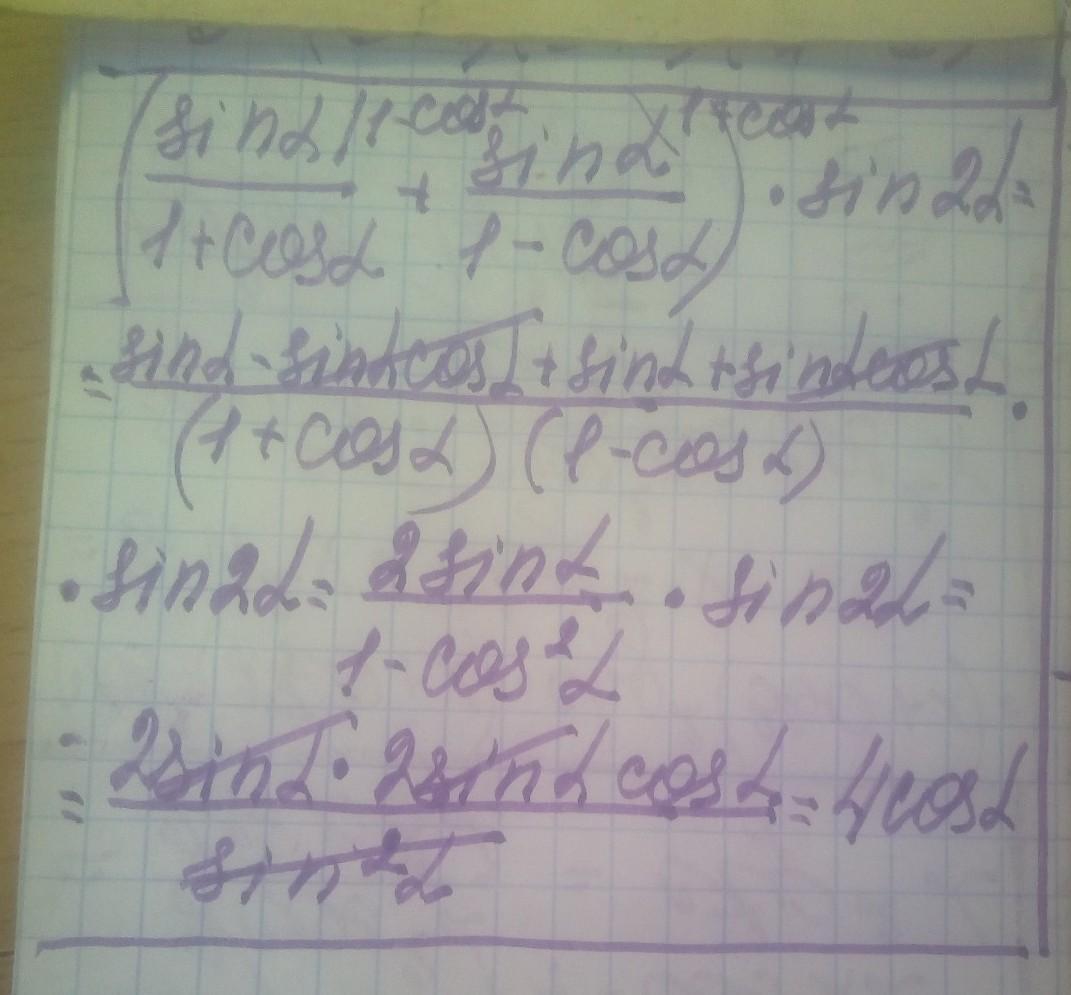 (sinα/1+cosα |1-cosα + sinα/1-cosα \1+cosα) · sin2α =
= sinα - sinαcosα + sinα + sinαcosα / (1+cosα)(1-cosα) ·
· sin2α = 2sinα / 1-cos²α · sin2α =
= 2sinα · 2sinα cosα / sin²α = 4cosα